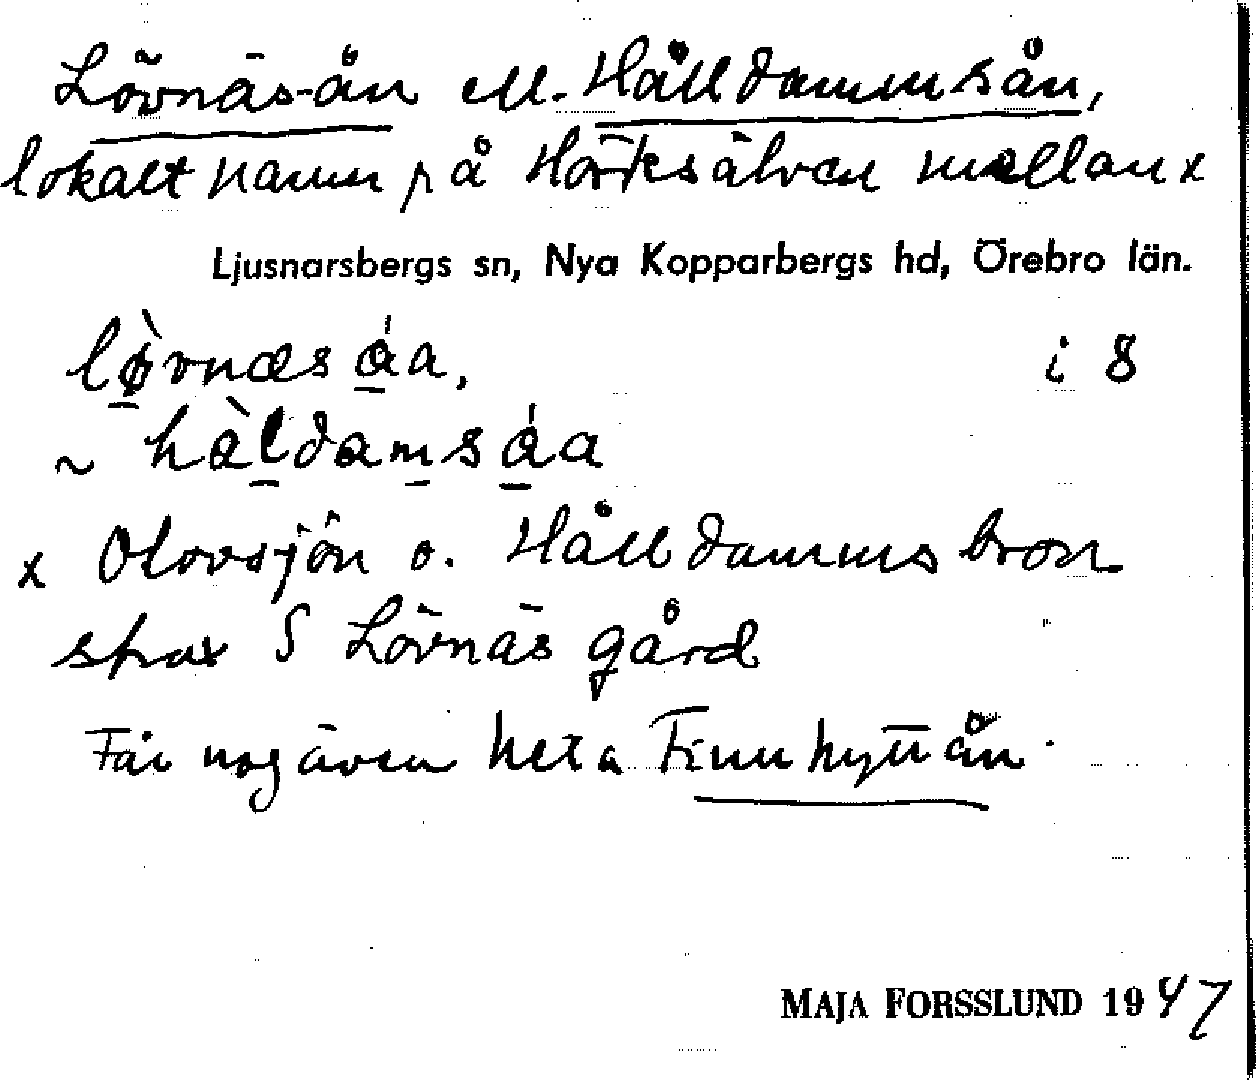 Lövnäs-ån ell. Hålldammsån,
lokalt namn på Hörksälven mellan x
Ljusnarsbergs sn, Nya Kopparbergs hd, Örebro län.
lø̀vnæsáa, i 8
~ hàldamsáa
x Olovsjön o. Hålldammsbron
strax S Lövnäs gård
Får nog även heta Finnhyttån.
MAJA FORSSLUND 1947